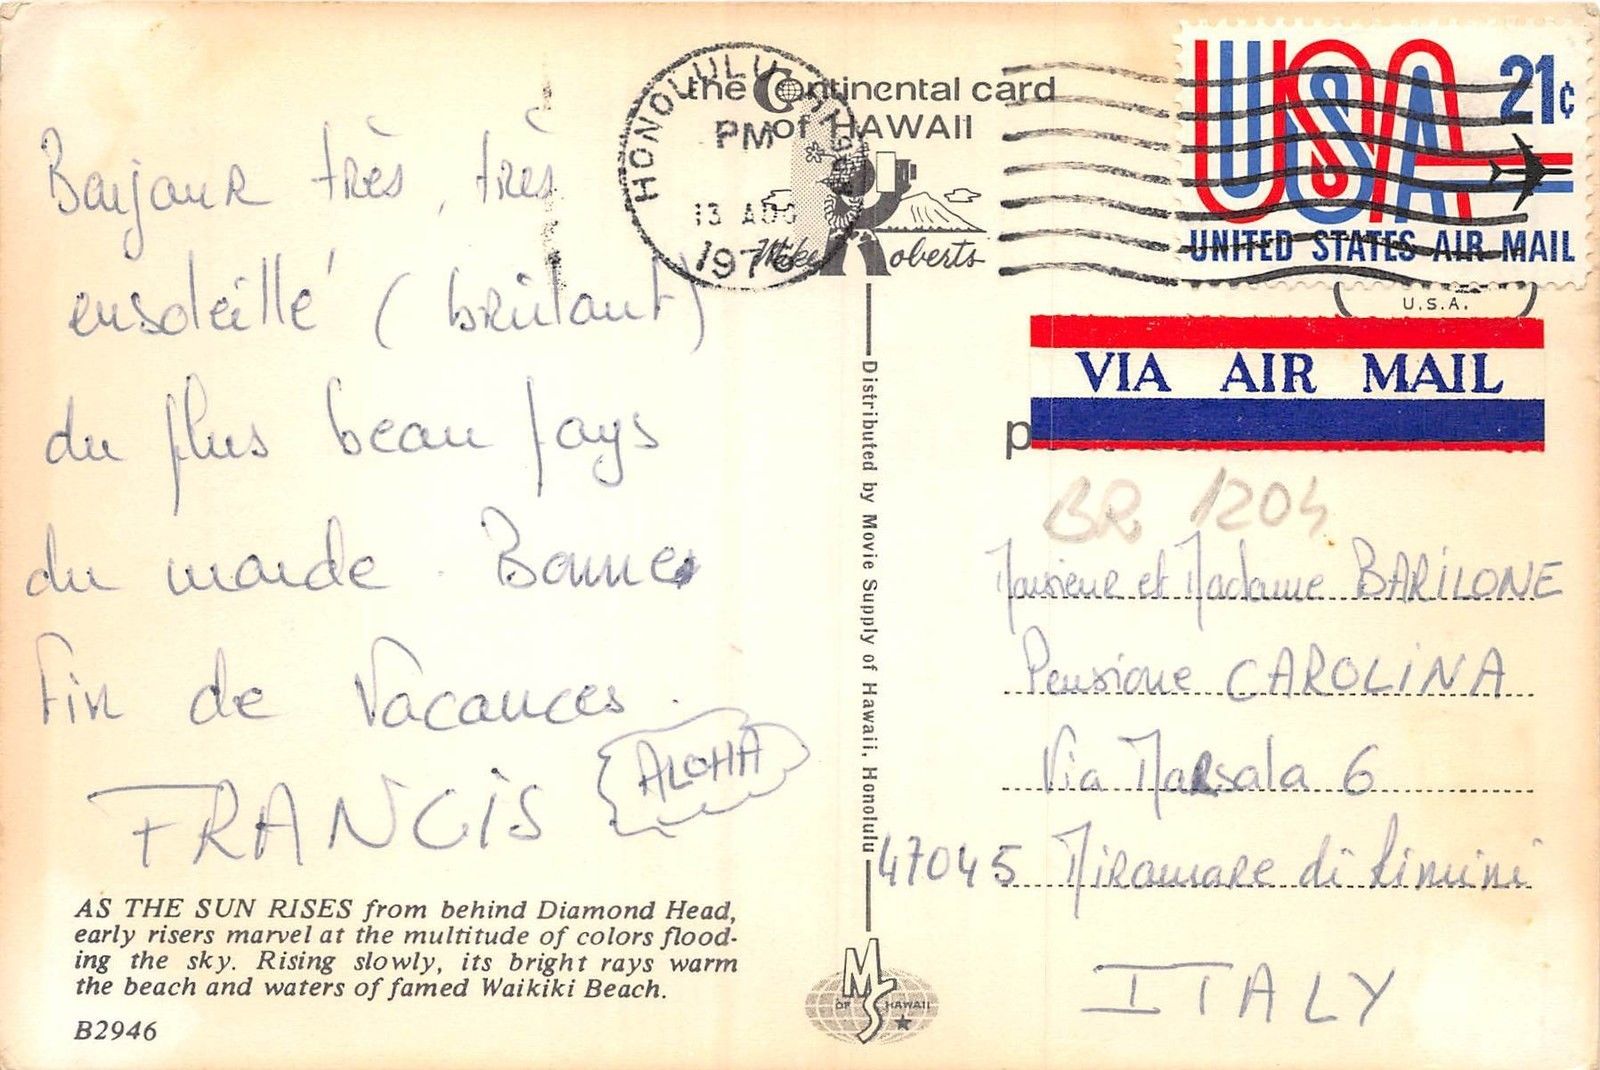 Bonjour très, très
ensoleillé (brûlant)
du plus beau pays
du monde. Bonne
Fin de Vacances.
FRANCIS
ALOHA
AS THE SUN RISES from behind Diamond Head,
early risers marvel at the multitude of colors flood-
ing the sky. Rising slowly, its bright rays warm
the beach and waters of famed Waikiki Beach.
B2946
the Continental card
of HAWAII
Mike Roberts
HONOLULU
PM
13 AUG
1976
Distributed by Movie Supply of Hawaii, Honolulu
MS
OF HAWAII
USA 21¢
UNITED STATES AIR MAIL
U.S.A.
VIA AIR MAIL
BR 1204
Monsieur et Madame BARILONE
Pensione CAROLINA
Via Marsala 6
47045 Miramare di Rimini
ITALY